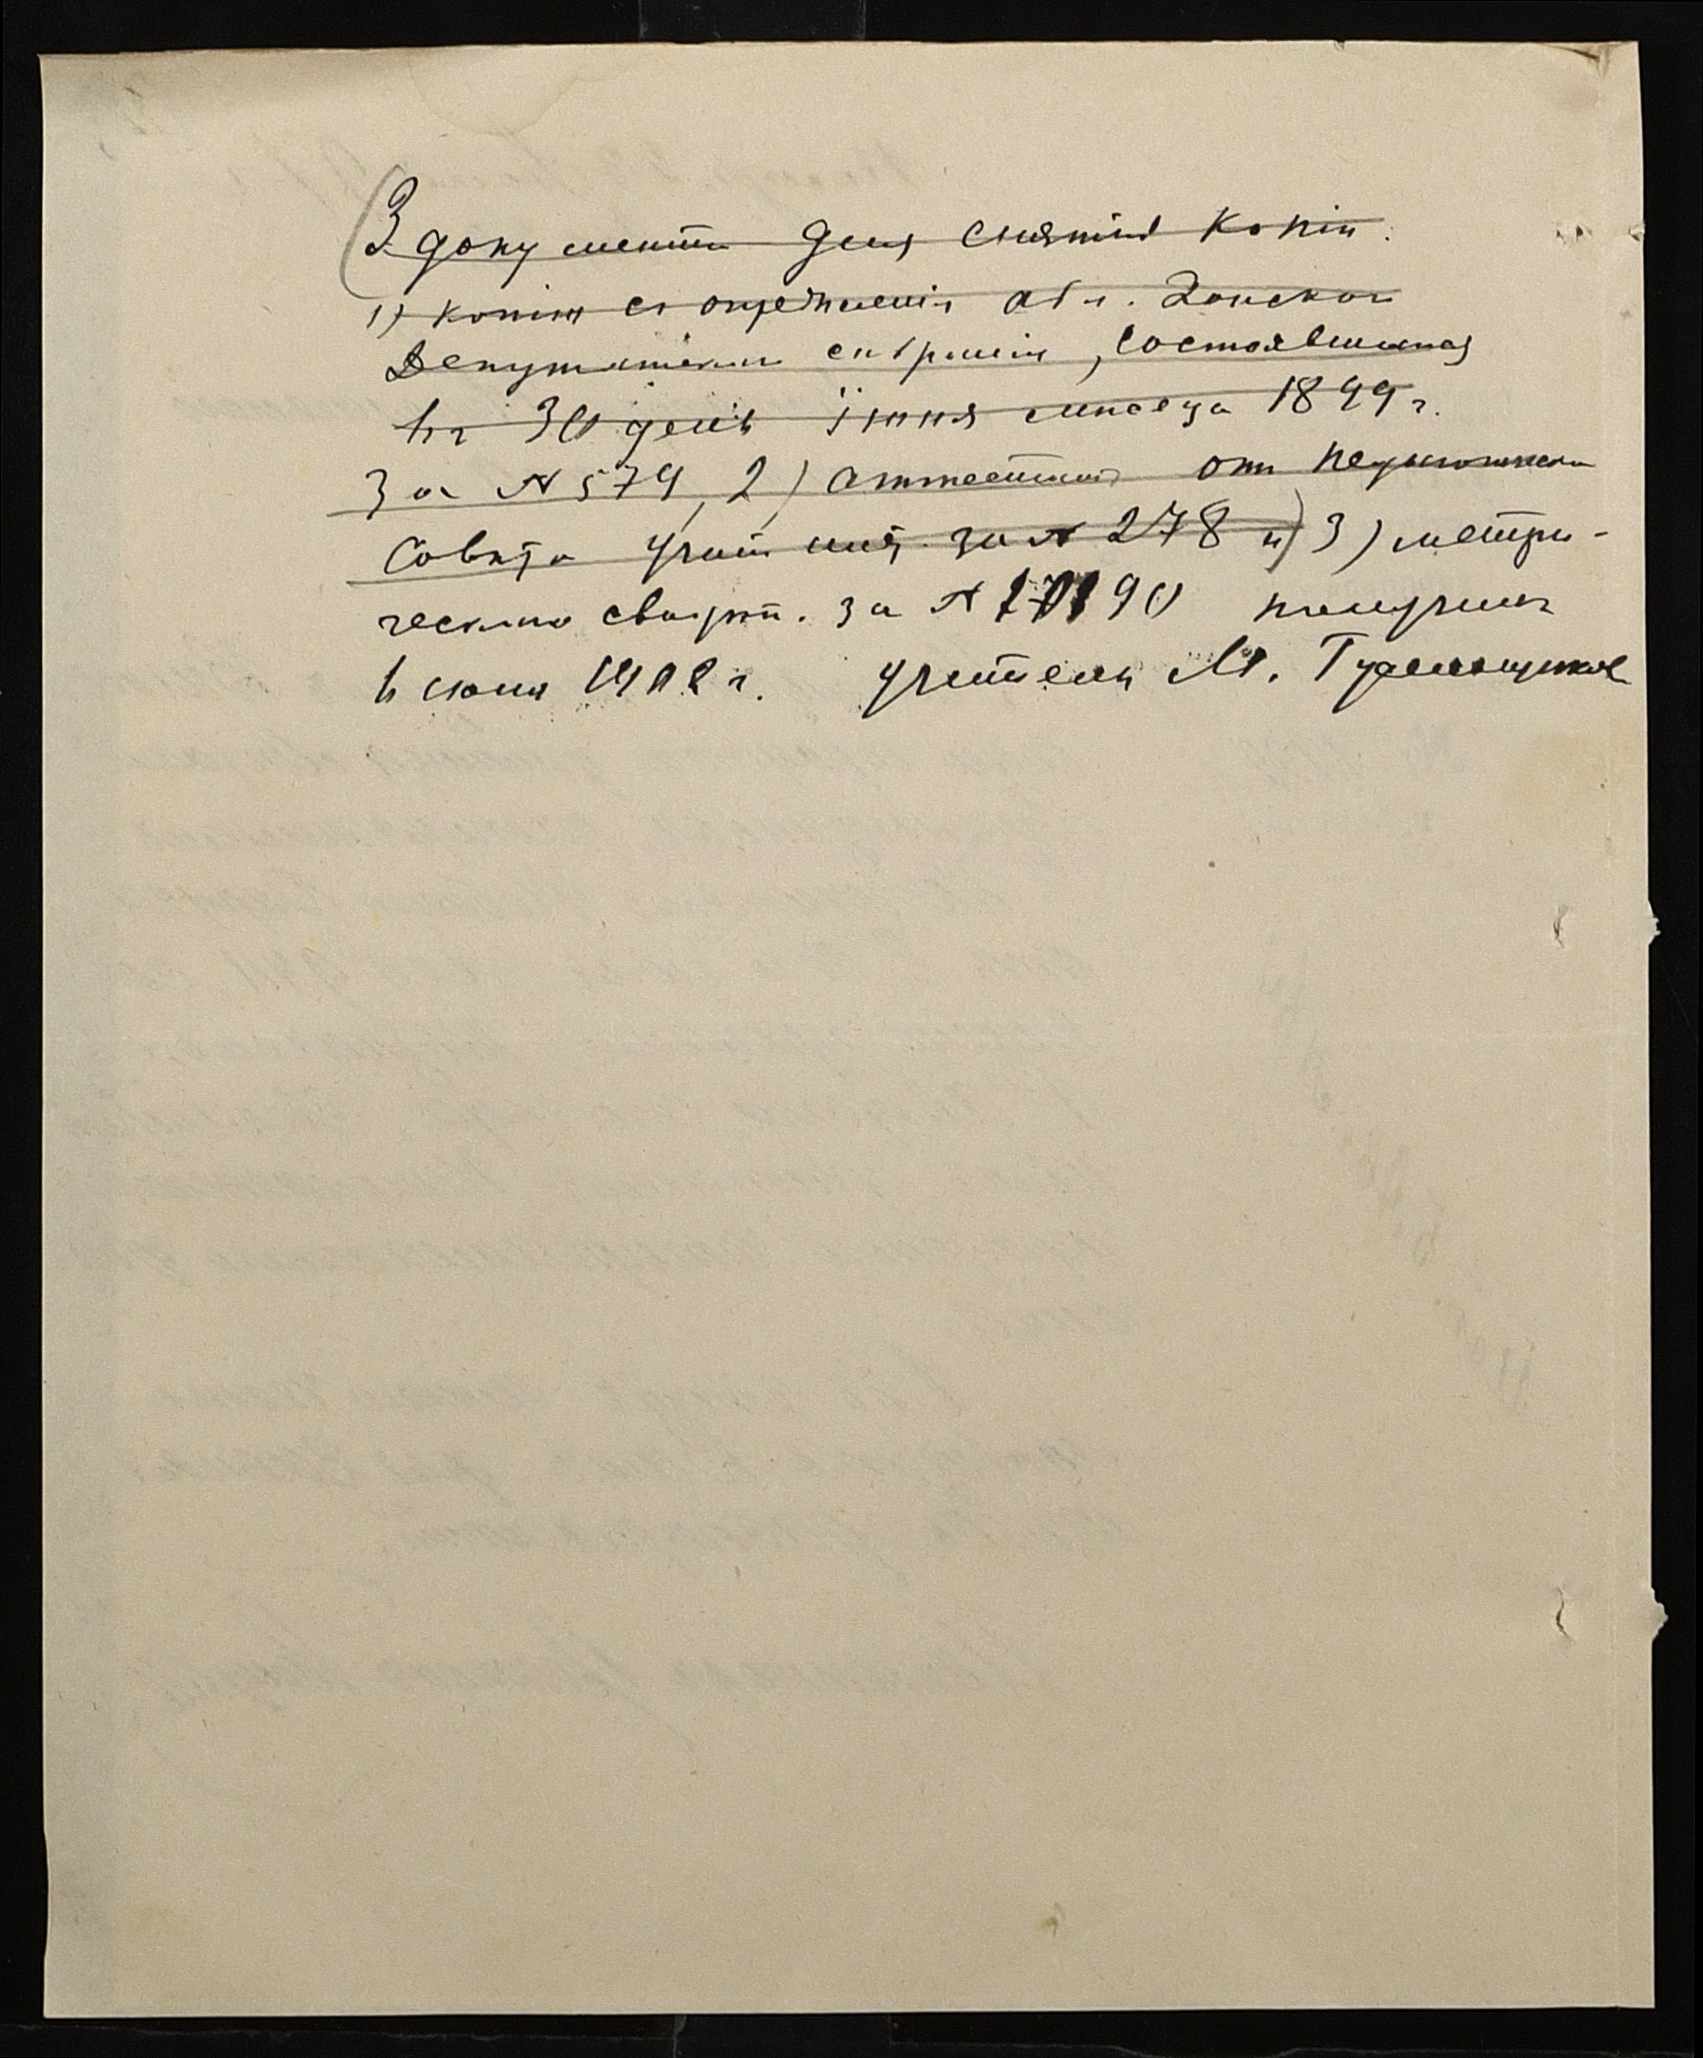 3 документа для снятія копіи.
1) копію съ опредѣленія обл. Донского
Депутатскаго собранія, состоявшагося
въ 30 день іюня мѣсяца 1899 г.
за № 579, 2) аттестатъ отъ педагогическаго
Совѣта учит. инст. за № 278 и) 3) метри-
ческое свидѣт. за № 17190 получилъ
6 іюня 1902 г. учитель М.